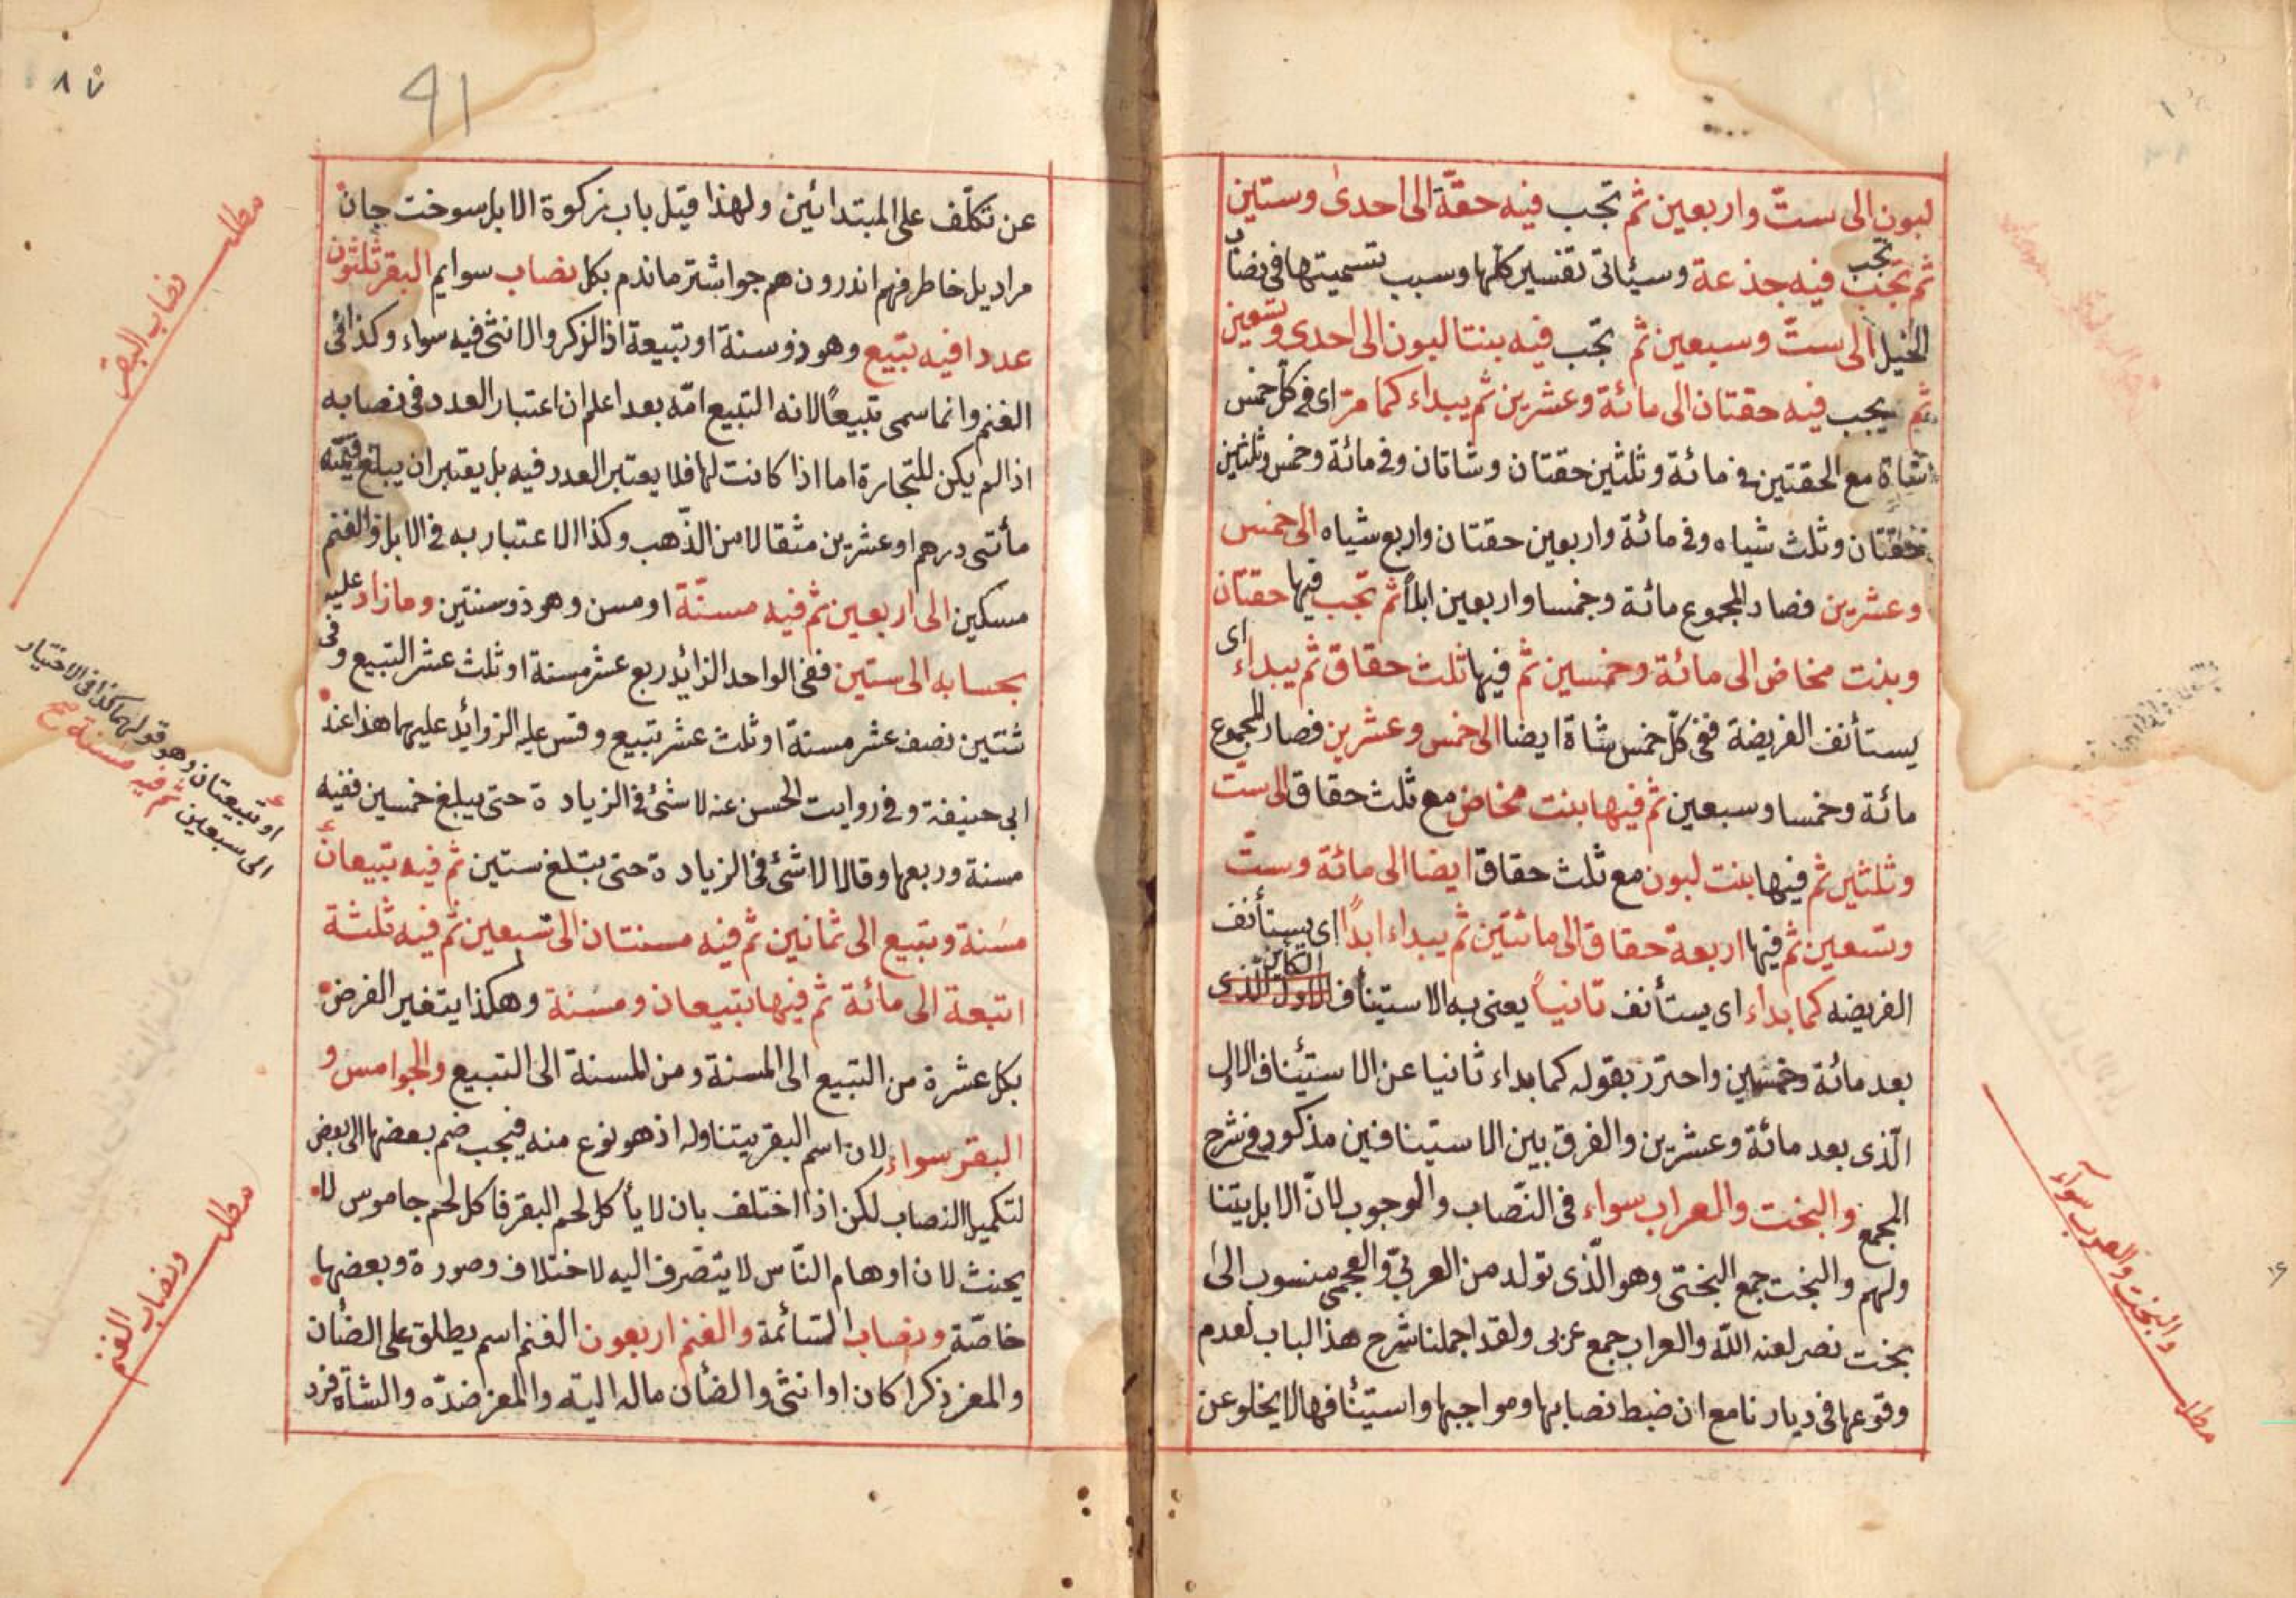 لبون الى ستّ واربعين ثم تجب فيه حقّة الى احدى وستين
ثم تجب تجب فيه جذعة وسئاتى تفسير كلها وسبب تسميتها فى نصاب
الخيل الى ستّ وسبعين ثم تجب فيه بنتا لبون الى احدى وتسعين
ثم يجب فيه حقتان الى مائة وعشرين ثم يبداء كما مرّ اى فى كل خمس
شاة مع الحقتين فى مائة وثلثين حقتان وشاتان وفى مائة وخمس وثلثين
حقتان وثلث شياه وفى مائة واربعين حقتان واربع شياه الى خمس
وعشرين فصار المجموع مائة وخمسا واربعين ابلاً ثم تجب فيها حقتان
وبنت مخاض الى مائة وخمسين ثم فيها ثلث حقاق ثم يبداء اى
يستأنف الفريضة ففى كلّ خمس شاة ايضا الى خمس وعشرين فصار المجموع
مائة وخمسا وسبعين ثم فيها بنت مخاض مع ثلث حقاق الى ست
وثلثين ثم فيها بنت لبون مع ثلث حقاق ايضا الى مائة وستّ
وتسعين ثم فيها اربعة حقاق الى مائتين ثم يبداء ابداً اى يستأنف
الفريضه كما بداء اى يستأنف ثانياً يعنى به الاستيناف الاول الذى الكاين
بعد مائة وخمسين واحترز بقوله كما بداء ثانيا عن الاستئناف الاول
الّذى بعد مائة وعشرين والفرق بين الاستينافين مذكور فى شرح
المجمع والبخت والعراب سواء فى النّصاب والوجوب لانّ الابل يتنا
ولهم والبخت جمع البختى وهو الّذى تولد من العربىّ والعجمى منسوب الى
بخت نصر لعنه اللّه والعراب جمع عربى ولقد اجملنا شرح هذا الباب لعدم
وقوعها فى ديارنا مع ان ضبط نصابها ومواجبها واستئنافها لا يخلو عن
مطلب والبخت والعرب سوآء
٨٧
91
عن تكلّف على المبتدائين ولهذا قيل باب زكوة الابل سوخت جان
مراديل خاطر فهم اندرون هم جو اشتر ماندم بكل نصاب سوايم البقر ثلثون
عددا فيه تبيع وهو ذو سنة او تبيعة اذ الزكر والانثى فيه سواء وكذا فى
الغنم وانما سمى تبيعًا لانه التبيع امّه بعد اعلم ان اعتبار العدد فى نصابه
اذا لم يكن للتجارة اما اذا كانت لها فلا يعتبر العدد فيه بل يعتبر ان يبلغ قيمته
مأتى درهم او عشرين مثقالا من الذّهب وكذا الاعتبار به فى الابل والغنم
مسكين الى اربعين ثم فيه مسنّة او مسن وهو ذو سنتين وما زاد عليه
بحسابه الى ستين ففى الواحد الزايد ربع عشر مسنة او ثلث عشر التبيع وفى
ثنتين نصف عشر مسنة او ثلث عشر تبيع وقس عليه الزوائد عليهما هذا عند
ابى حنيفة وفى روايت الحسن عنه لا شئ فى الزيادة حتى يبلغ خمسين ففيه
مسنة وربعها وقالا لا شئ فى الزيادة حتى يبتلغ ستين ثم فيه تبيعان
مسنة وتبيع الى ثمانين ثم فيه مسنتان الى تسعين ثم فيه ثلثة
اتبعة الى مائة ثم فيها تبيعان ومسنة وهكذا يتغير الفرض
بكل عشرة من التبيع الى المسنة ومن المسنة الى التبيع والجوامس و
البقر سواء لان اسم البقر يتناوله اذ هو نوع منه فيجب ضم بعضها الى بعض
لتكميل النصاب لكن اذا اختلف بان لا يأكل لحم البقر فاكل لحم جاموس لا
يحنث لان اوهام النّاس لا يتصرف اليه لاختلاف وصورة وبعضها
خاصّة ونصاب السّائمة والغنم اربعون الغنم اسم يطلق على الضأن
والمعز ذكرا كان او انثى والضأن ماله اليته والمعز ضدّه والشاة فرد
مطلب نصاب البقر
او تبيعتان وهو قولهما كذا فى الاختيار
الى سبعين ثم فيه مسنة صح
مطلب ونصاب الغنم